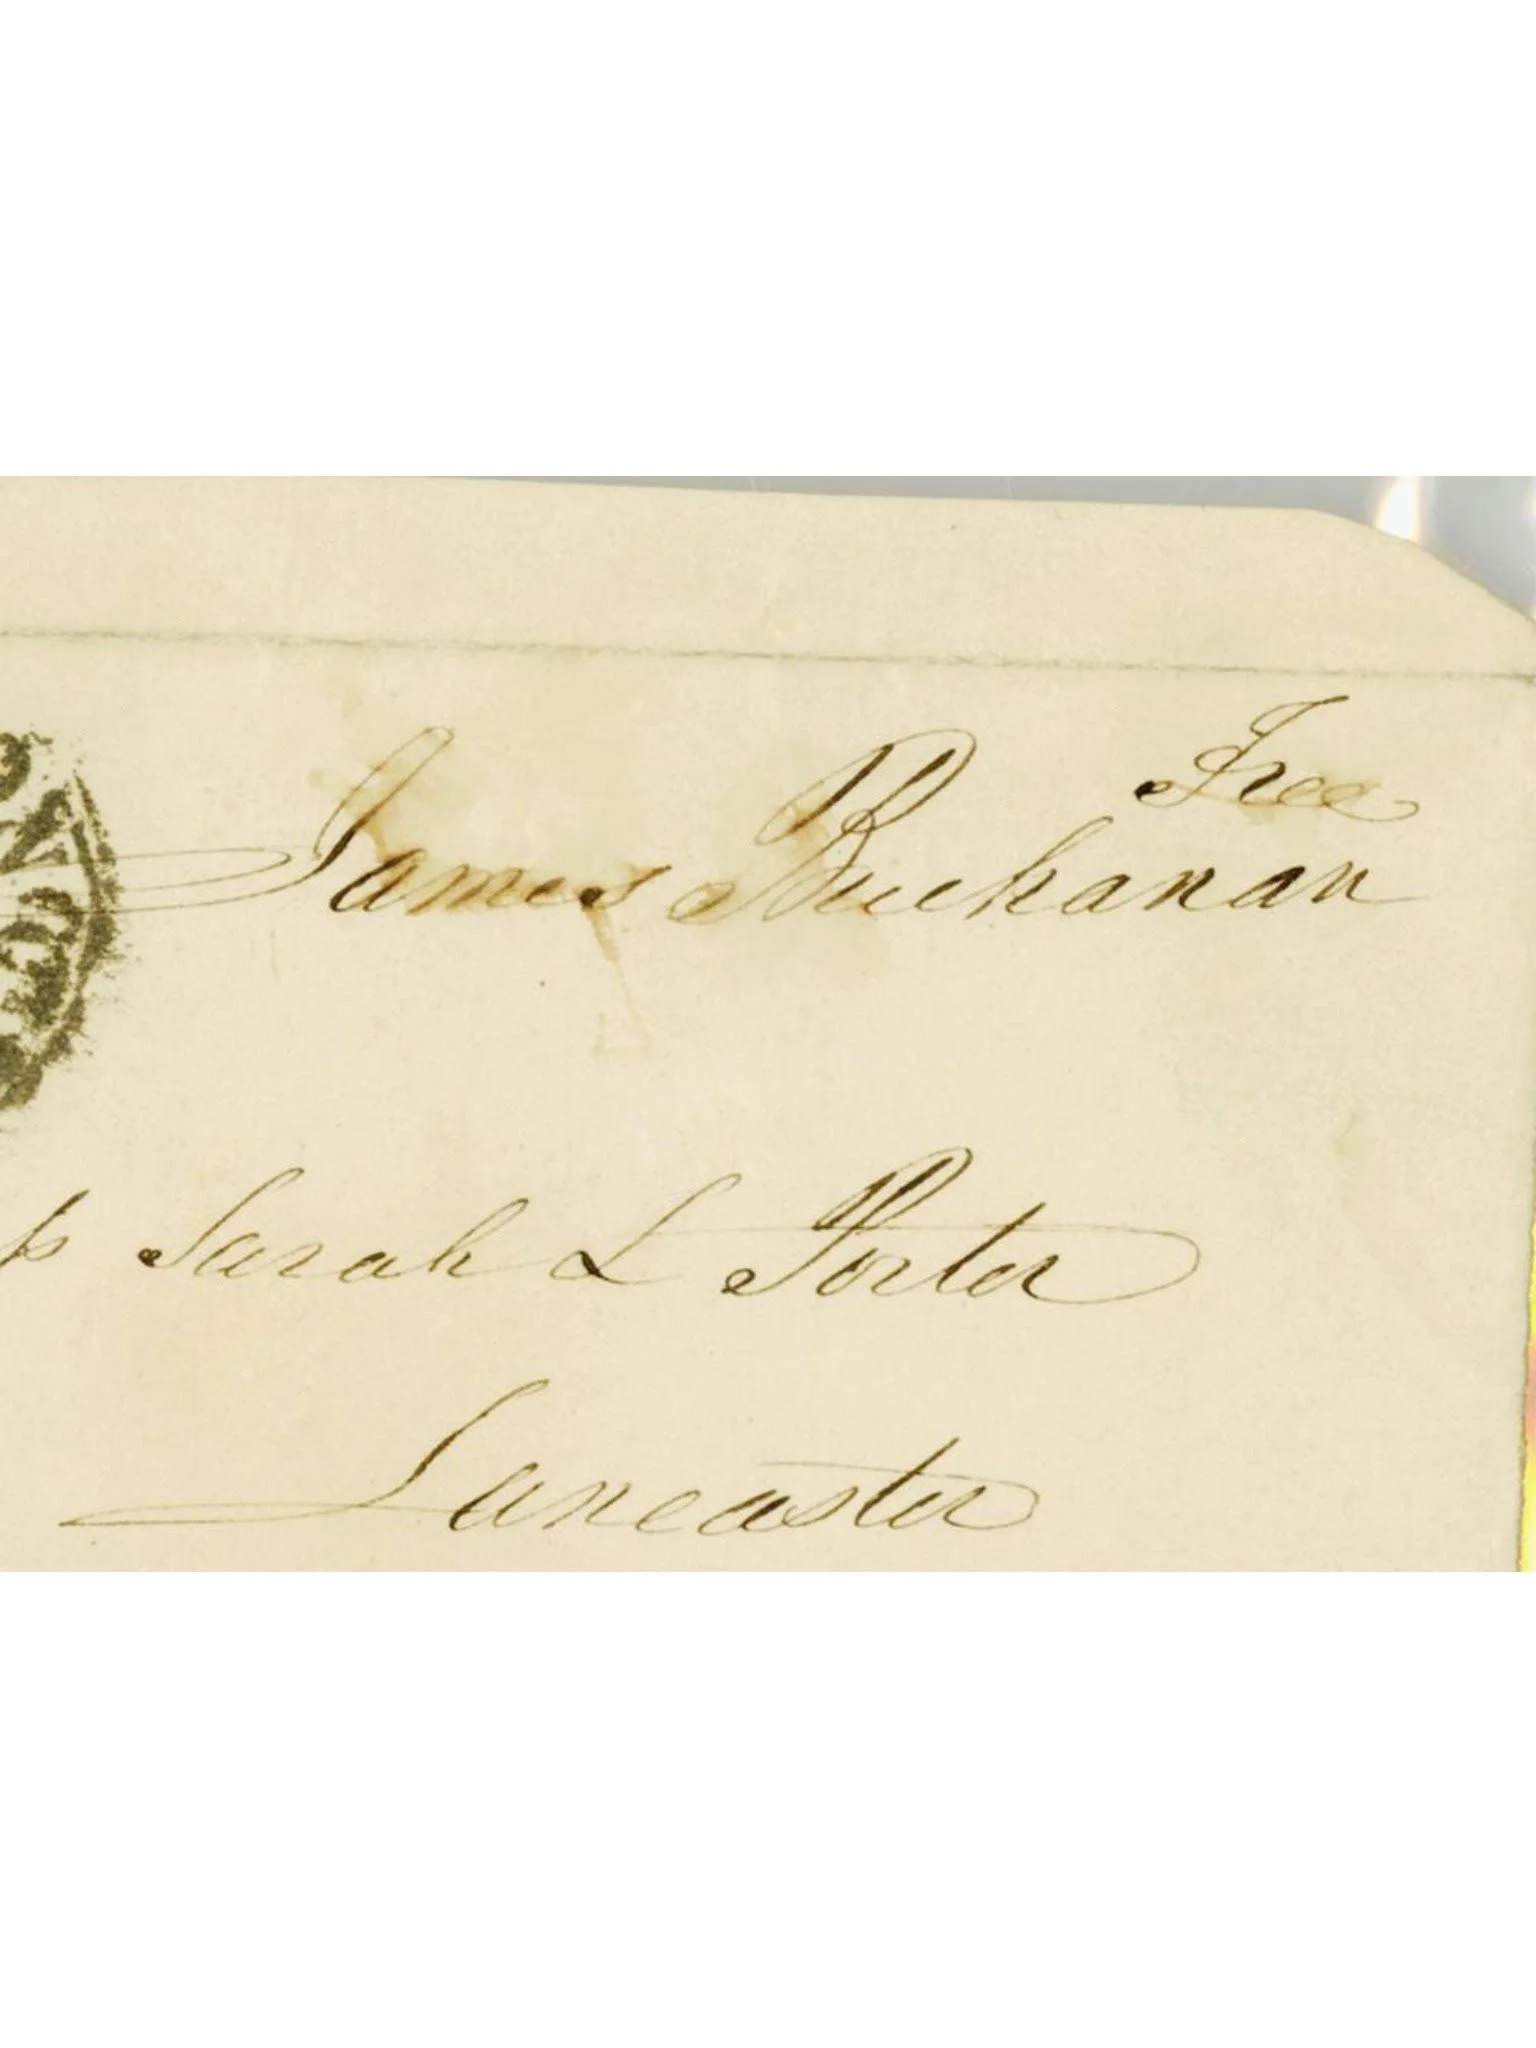 Free
James Buchanan
Sarah L Porter
Lancaster